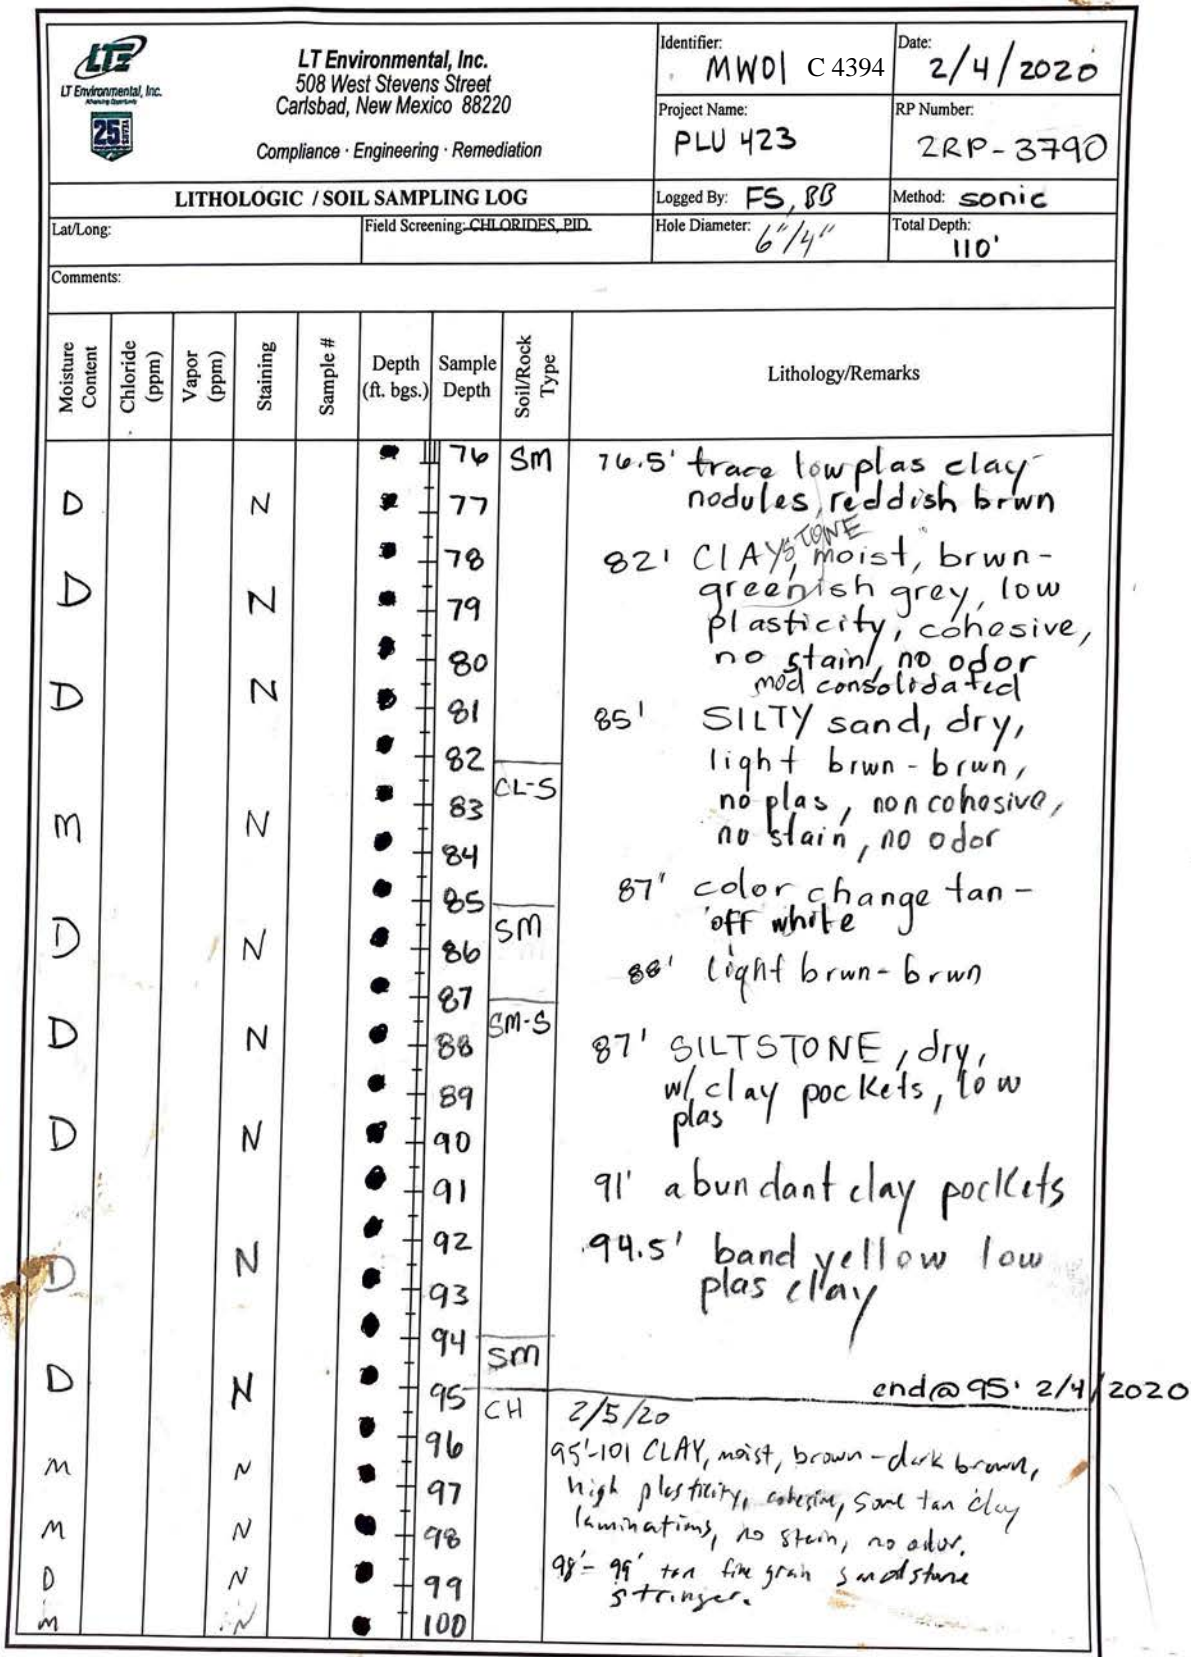 LTE
LT Environmental, Inc.
Advancing Opportunity
25 YEARS
LT Environmental, Inc.
508 West Stevens Street
Carlsbad, New Mexico 88220
Compliance · Engineering · Remediation
Identifier:
MW01 C 4394
Date:
2/4/2020
Project Name:
PLU 423
RP Number:
2RP-3790
LITHOLOGIC / SOIL SAMPLING LOG
Logged By: FS, BB
Method: sonic
Lat/Long:
Field Screening: CHLORIDES, PID
Hole Diameter: 6"/4"
Total Depth:
110'
Comments:
Moisture Content
Chloride (ppm)
Vapor (ppm)
Staining
Sample #
Depth (ft. bgs.)
Sample Depth
Soil/Rock Type
Lithology/Remarks
76 SM 76.5' trace low plas clay
D N 77 nodules, reddish brwn
78 82' CLAYSTONE, moist, brwn-
D N 79 greenish grey, low
plasticity, cohesive,
80 no stain, no odor
mod consolidated
D N 81 85' SILTY sand, dry,
82 light brwn - brwn,
CL-S
M N 83 no plas, non cohosive,
84 no stain, no odor
85 87' color change tan -
D N 86 SM off white
87 88' light brwn - brwn
SM-S
D N 88 87' SILTSTONE, dry,
89 w/ clay pockets, low
D N 90 plas
91 91' abundant clay pockets
92 94.5' band yellow low
D N 93 plas clay
94
SM
D N 95 end@95' 2/4/2020
CH 2/5/20
96 95'-101 CLAY, moist, brown-dark brown,
M N 97 high plasticity, cohesive, some tan clay
M N 98 laminations, no stain, no odor.
D N 99 98'-99' tan fine grain sandstone
stringer.
M N 100